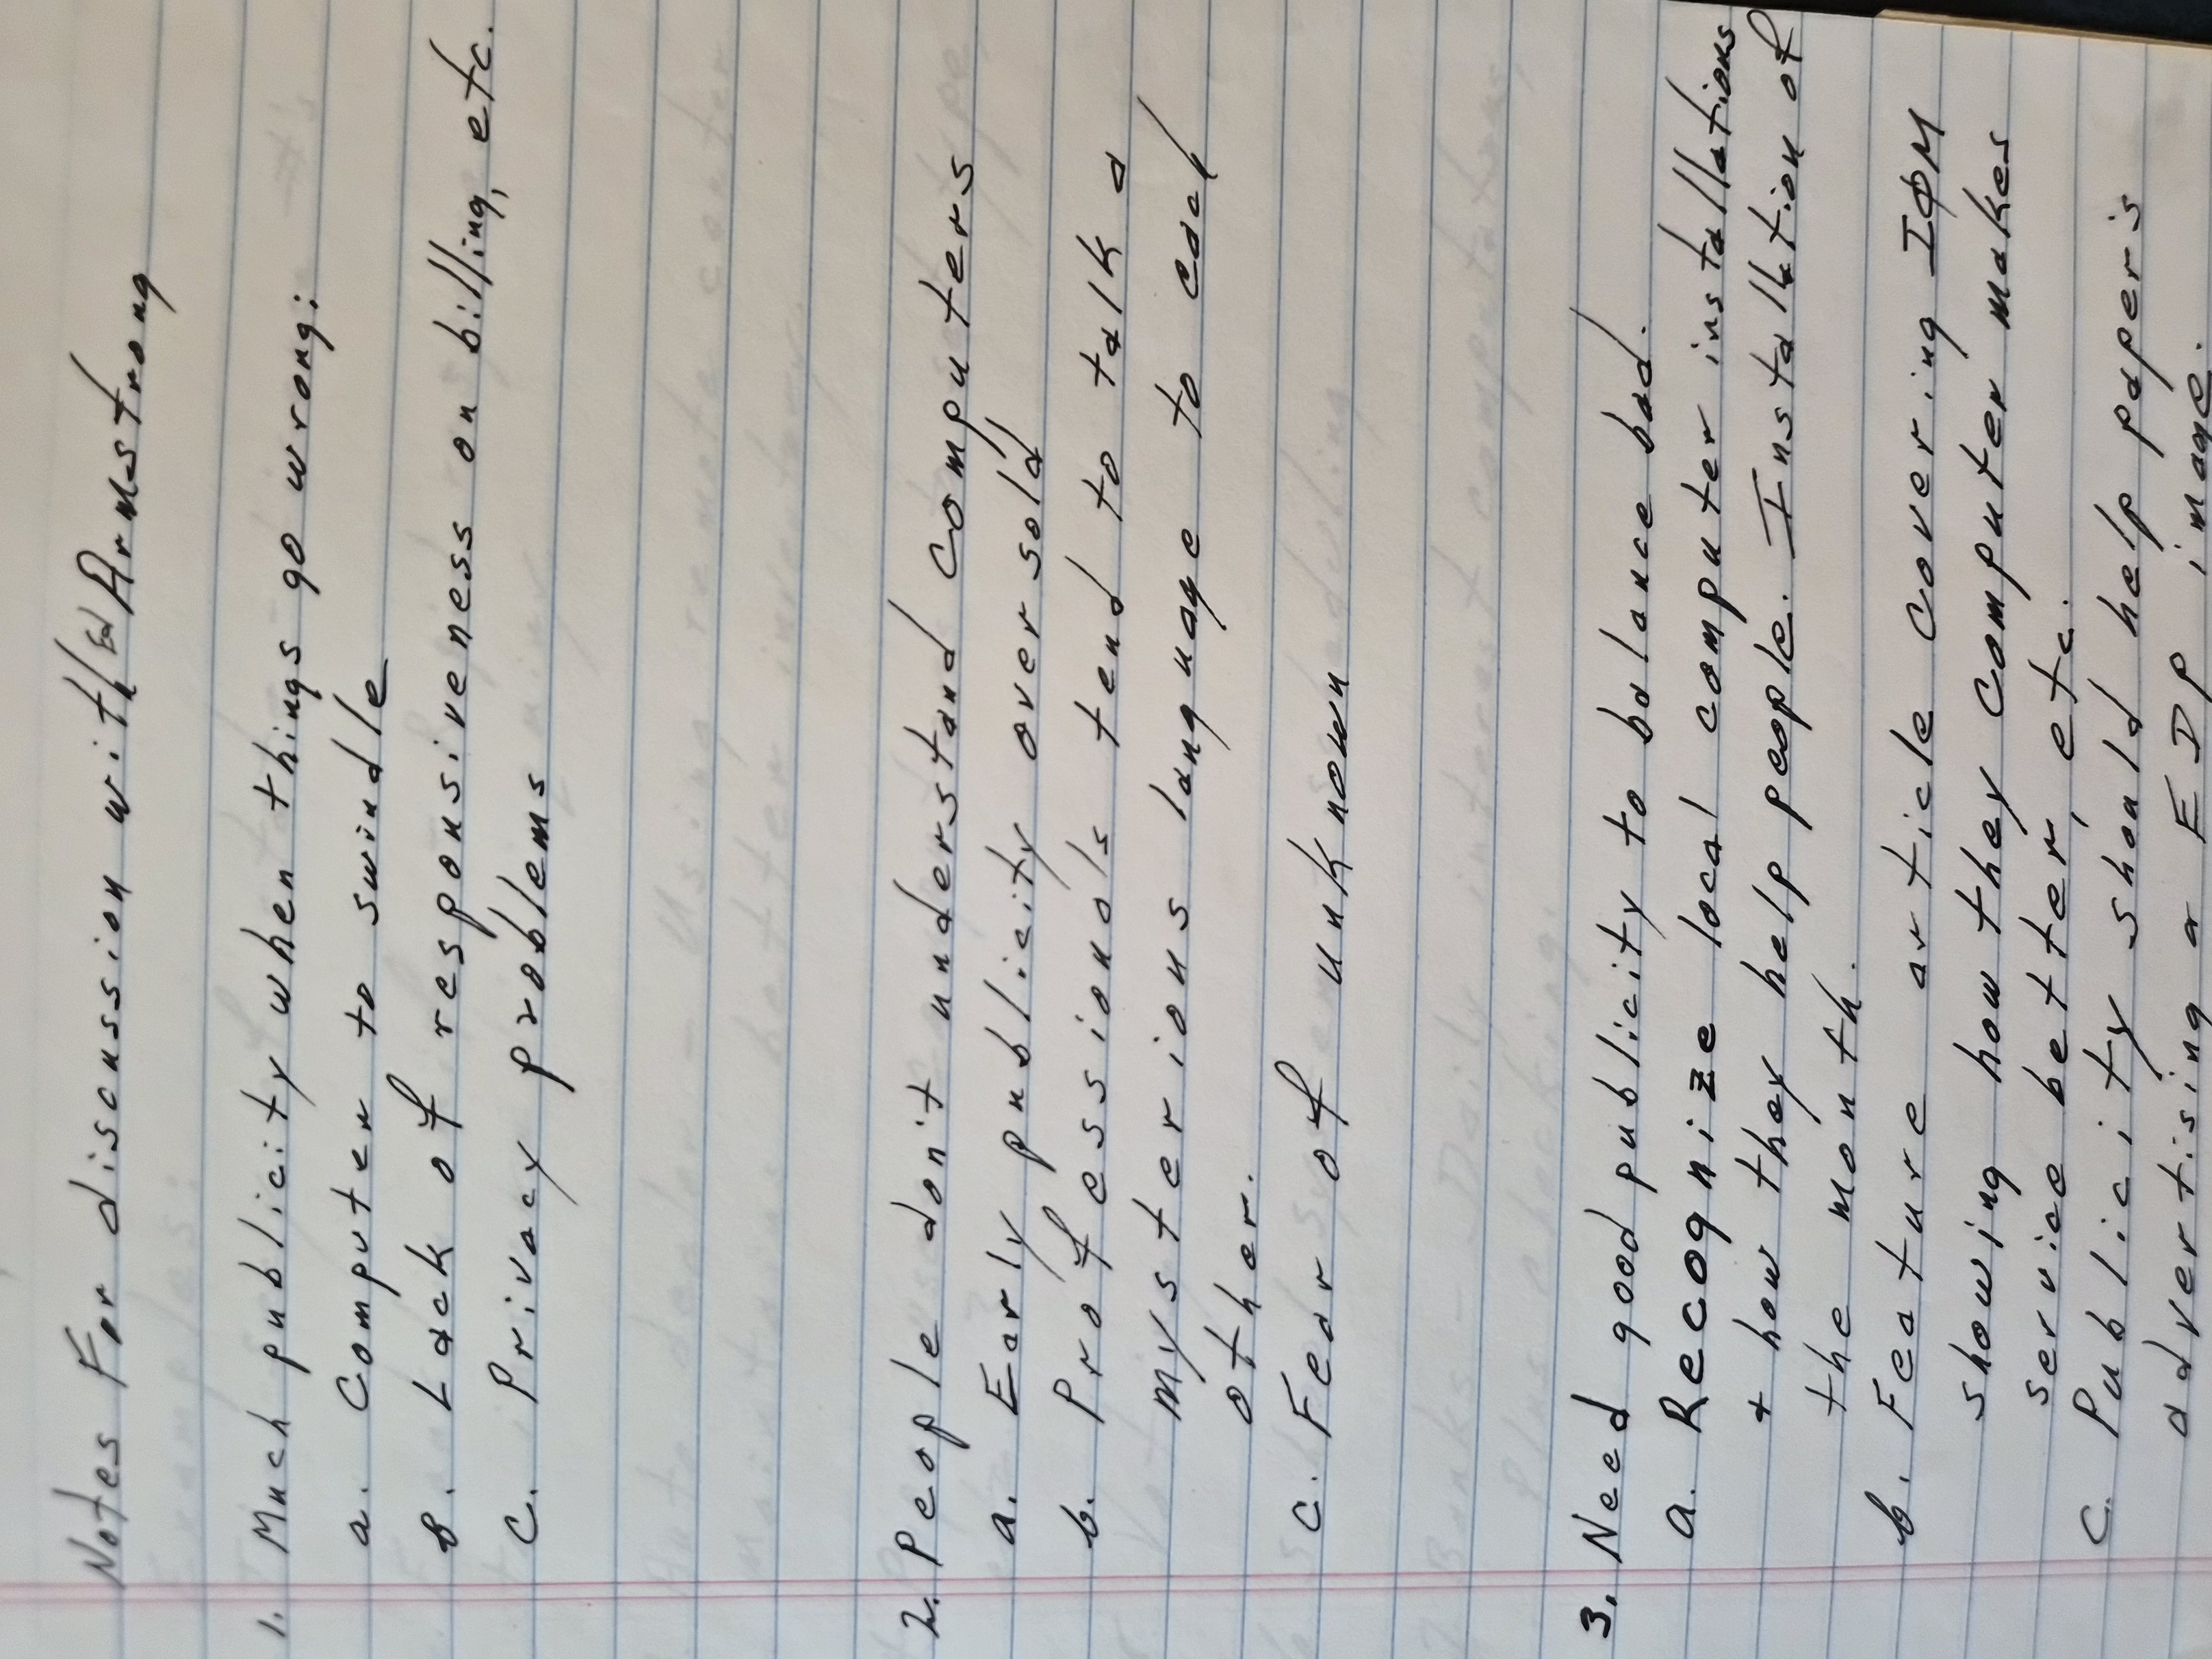 Notes For discussion with Ed Armstrong
Examples:
1. Much publicity when things go wrong:
a. Computer to swindle
b. Lack of responsiveness on billing, etc.
c. Privacy problems
Auto dealer - Using remote center
Maintains better inventory.
2. People don't understand computers
a. Early publicity over sold
b. Professionals tend to talk a
mysterious language to each
other.
c. Fear of unknown
7. Banks - Daily interest computations,
Plus checking.
3. Need good publicity to balance bad.
a. Recognize local computer installations
+ how they help people. Installation of
the month.
b. Feature article covering IOM
showing how they computer makes
service better, etc.
c. Publicity should help paper's
advertising & EDP image.